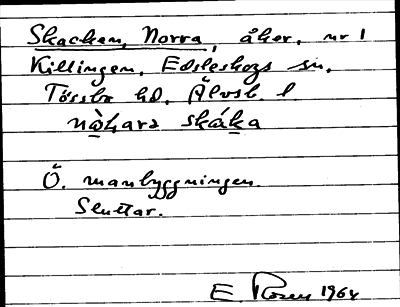 Skackan, Norra, åker, nr 1
Killingen, Edsleskogs sn,
Tössbo hd, Älvsb. l
nòhara skáka
Ö. manbyggningen.
Sluttar.
E. Rosen 1964